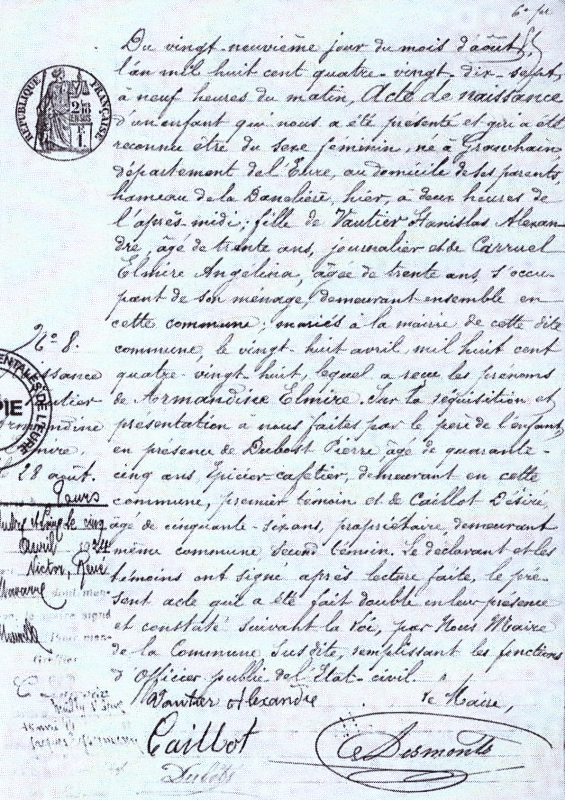 6e
Du vingt-neuvième jour du mois d'août,
l'an mil huit cent quatre-vingt-dix-sept,
à neuf heures du matin, Acte de naissance
d'un enfant qui nous a été présenté et qui a été
reconnu être du sexe féminin, né à
département de l'Eure, au domicile de ses parents,
hameau de la hier, à deux heures de
l'après-midi; fille de Vautier Stanislas Alexan-
dre, âgé de trente ans, journalier et de Carruel
Elmire Angelina, âgée de trente ans, s'occu-
pant de son ménage, demeurant ensemble en
cette commune; mariés à la mairie de cette dite
commune, le vingt-huit avril, mil huit cent
quatre-vingt-huit, lequel a reçu les prénoms
de Armandine Elmire. Sur la réquisition et
présentation à nous faites par le père de l'enfant,
en présence de Dubost Pierre âgé de quarante-
cinq ans, Epicier-cafetier, demeurant en cette
commune, premier témoin et de Caillot Désiré,
âgé de cinquante-six ans, propriétaire, demeurant
même commune, second témoin. Le déclarant et les
témoins ont signé après lecture faite, le pré-
sent acte qui a été fait double en leur présence
et constaté suivant la loi, par Nous Maire
de la Commune susdite, remplissant les fonctions
d'Officier public de l'Etat-civil.
Vautier Alexandre le Maire,
Caillot Desmonts
Dubost
RÉPUBLIQUE FRANÇAISE
No 8.
issance
utier
rmandine
28 août.
le cinq
avril 1924
Victor, René
DE L'EURE
PIE